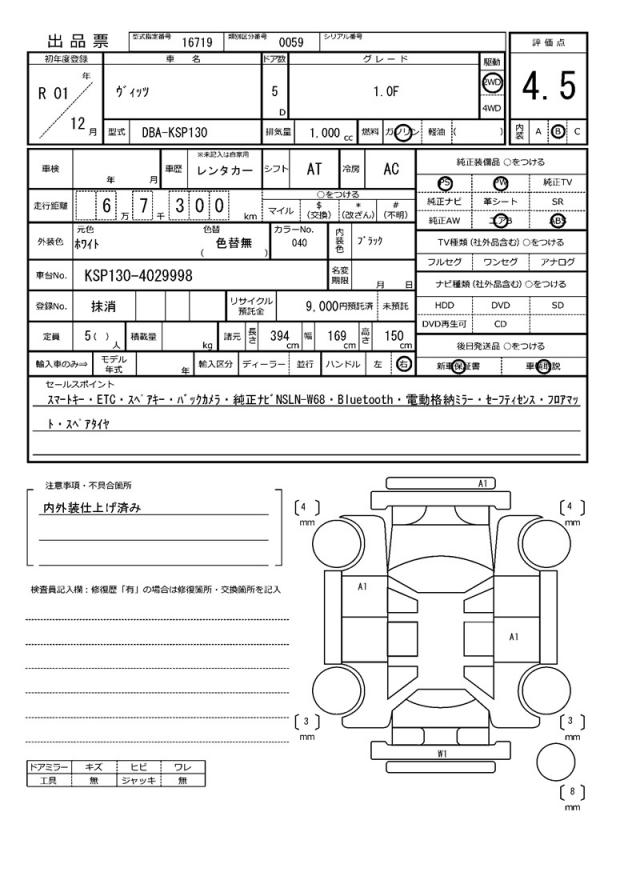 出品票 型式指定番号 16719 類別区分番号 0059 シリアル番号
初年度登録 車名 ドア数 グレード 駆動 評価点
R 01 年 12 月 ヴィッツ 5 D 1.0F 2WD 4WD 4.5
型式 DBA-KSP130 排気量 1.000 cc 燃料 ガソリン 軽油 ( ) 内装 A B C
車検 年 月 車歴 ※未記入は自家用 レンタカー シフト AT 冷房 AC 純正装備品 ○をつける
PS PW 純正TV
走行距離 6 万 7 千 3 0 0 km ○をつける マイル $ (交換) * (改ざん) # (不明) 純正ナビ 革シート SR
純正AW エアB ABS
外装色 元色 ホワイト 色替 色替無 ( ) カラーNo. 040 内装色 ブラック TV種類(社外品含む)○をつける
フルセグ ワンセグ アナログ
車台No. KSP130-4029998 名変期限 月 日 ナビ種類(社外品含む)○をつける
登録No. 抹消 リサイクル預託金 9,000円預託済 未預託 HDD DVD SD
DVD再生可 CD
定員 5( ) 人 積載量 kg 諸元 長さ 394 cm 幅 169 cm 高さ 150 cm 後日発送品 ○をつける
輸入車のみ⇒ モデル年式 年 輸入区分 ディーラー 並行 ハンドル 左 右 新車保証書 車輌取説
セールスポイント
スマートキー・ETC・スペアキー・バックカメラ・純正ナビNSLN-W68・Bluetooth・電動格納ミラー・セーフティセンス・フロアマッ
ト・スペアタイヤ
注意事項・不具合箇所
内外装仕上げ済み
検査員記入欄：修復歴「有」の場合は修復箇所・交換箇所を記入
A1
[ 4 ] mm
[ 4 ] mm
A1
A1
[ 3 ] mm
[ 3 ] mm
W1
[ 8 ] mm
ドアミラー キズ ヒビ ワレ
工具 無 ジャッキ 無